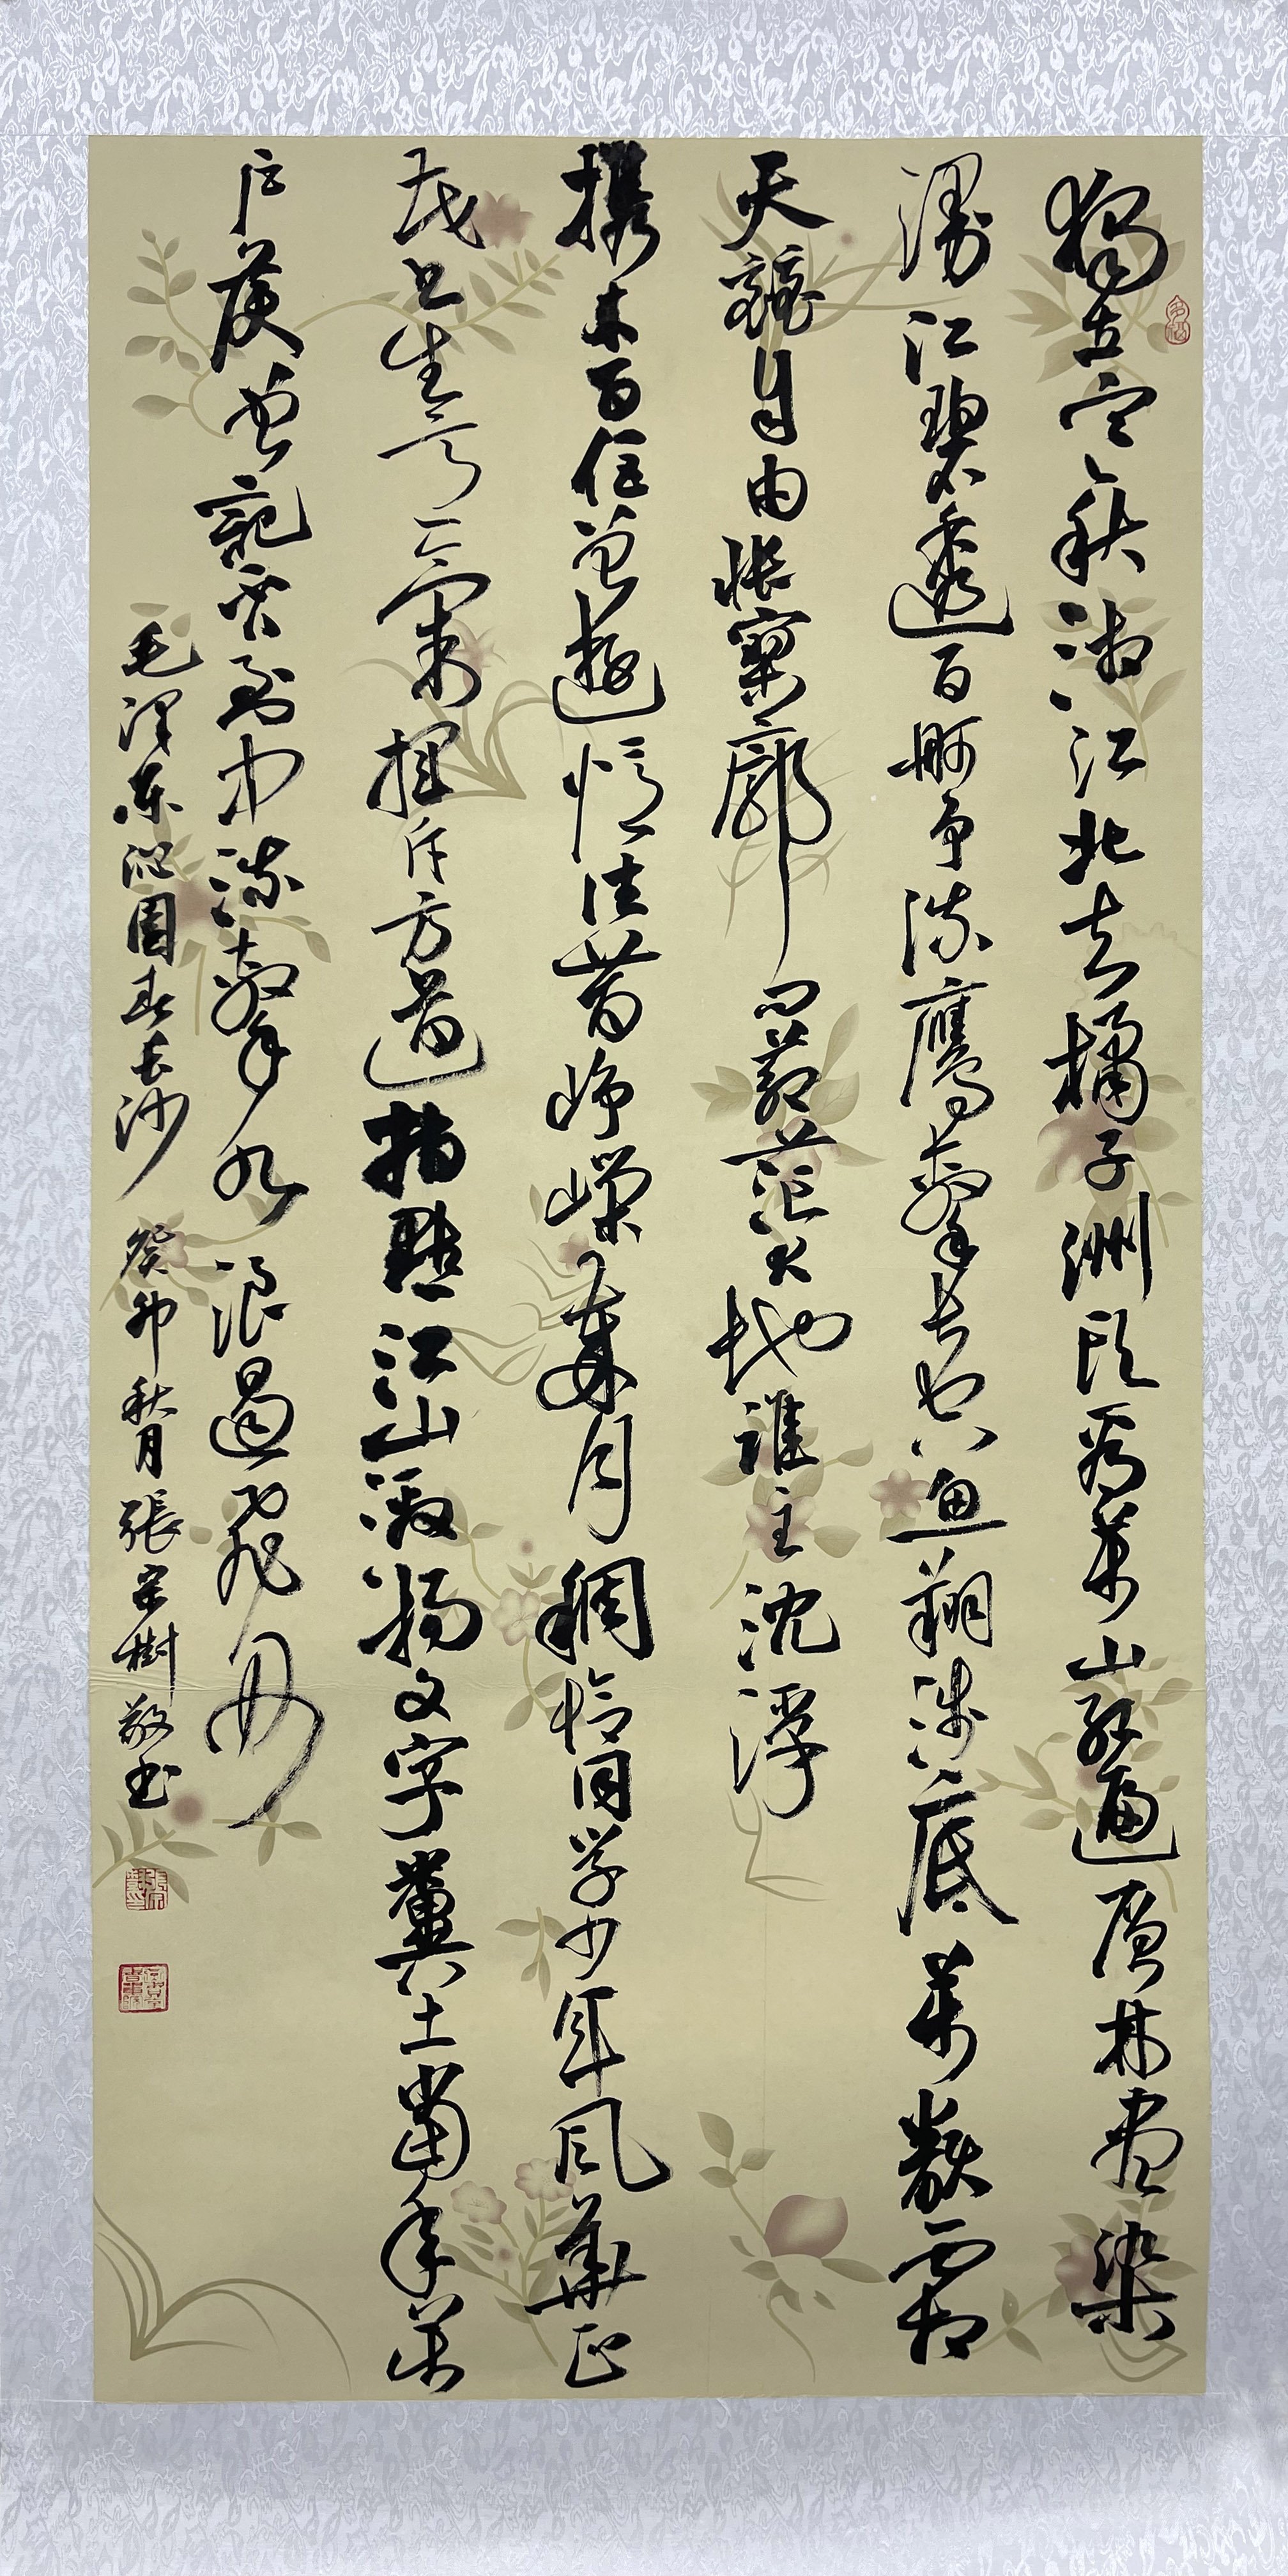 獨立寒秋湘江北去橘子洲頭看萬山紅遍層林盡染
漫江碧透百舸爭流鷹擊長空魚翔淺底萬類霜
天競自由悵寥廓問蒼茫大地誰主沈浮
携來百侶曾遊憶往昔崢嶸歲月稠恰同学少年風華正
茂書生意氣揮斥方遒指點江山激揚文字糞土當年萬
户侯曾記否到中流擊水浪遏飛舟
毛澤東沁園春長沙 癸卯秋月 張宗樹敬书